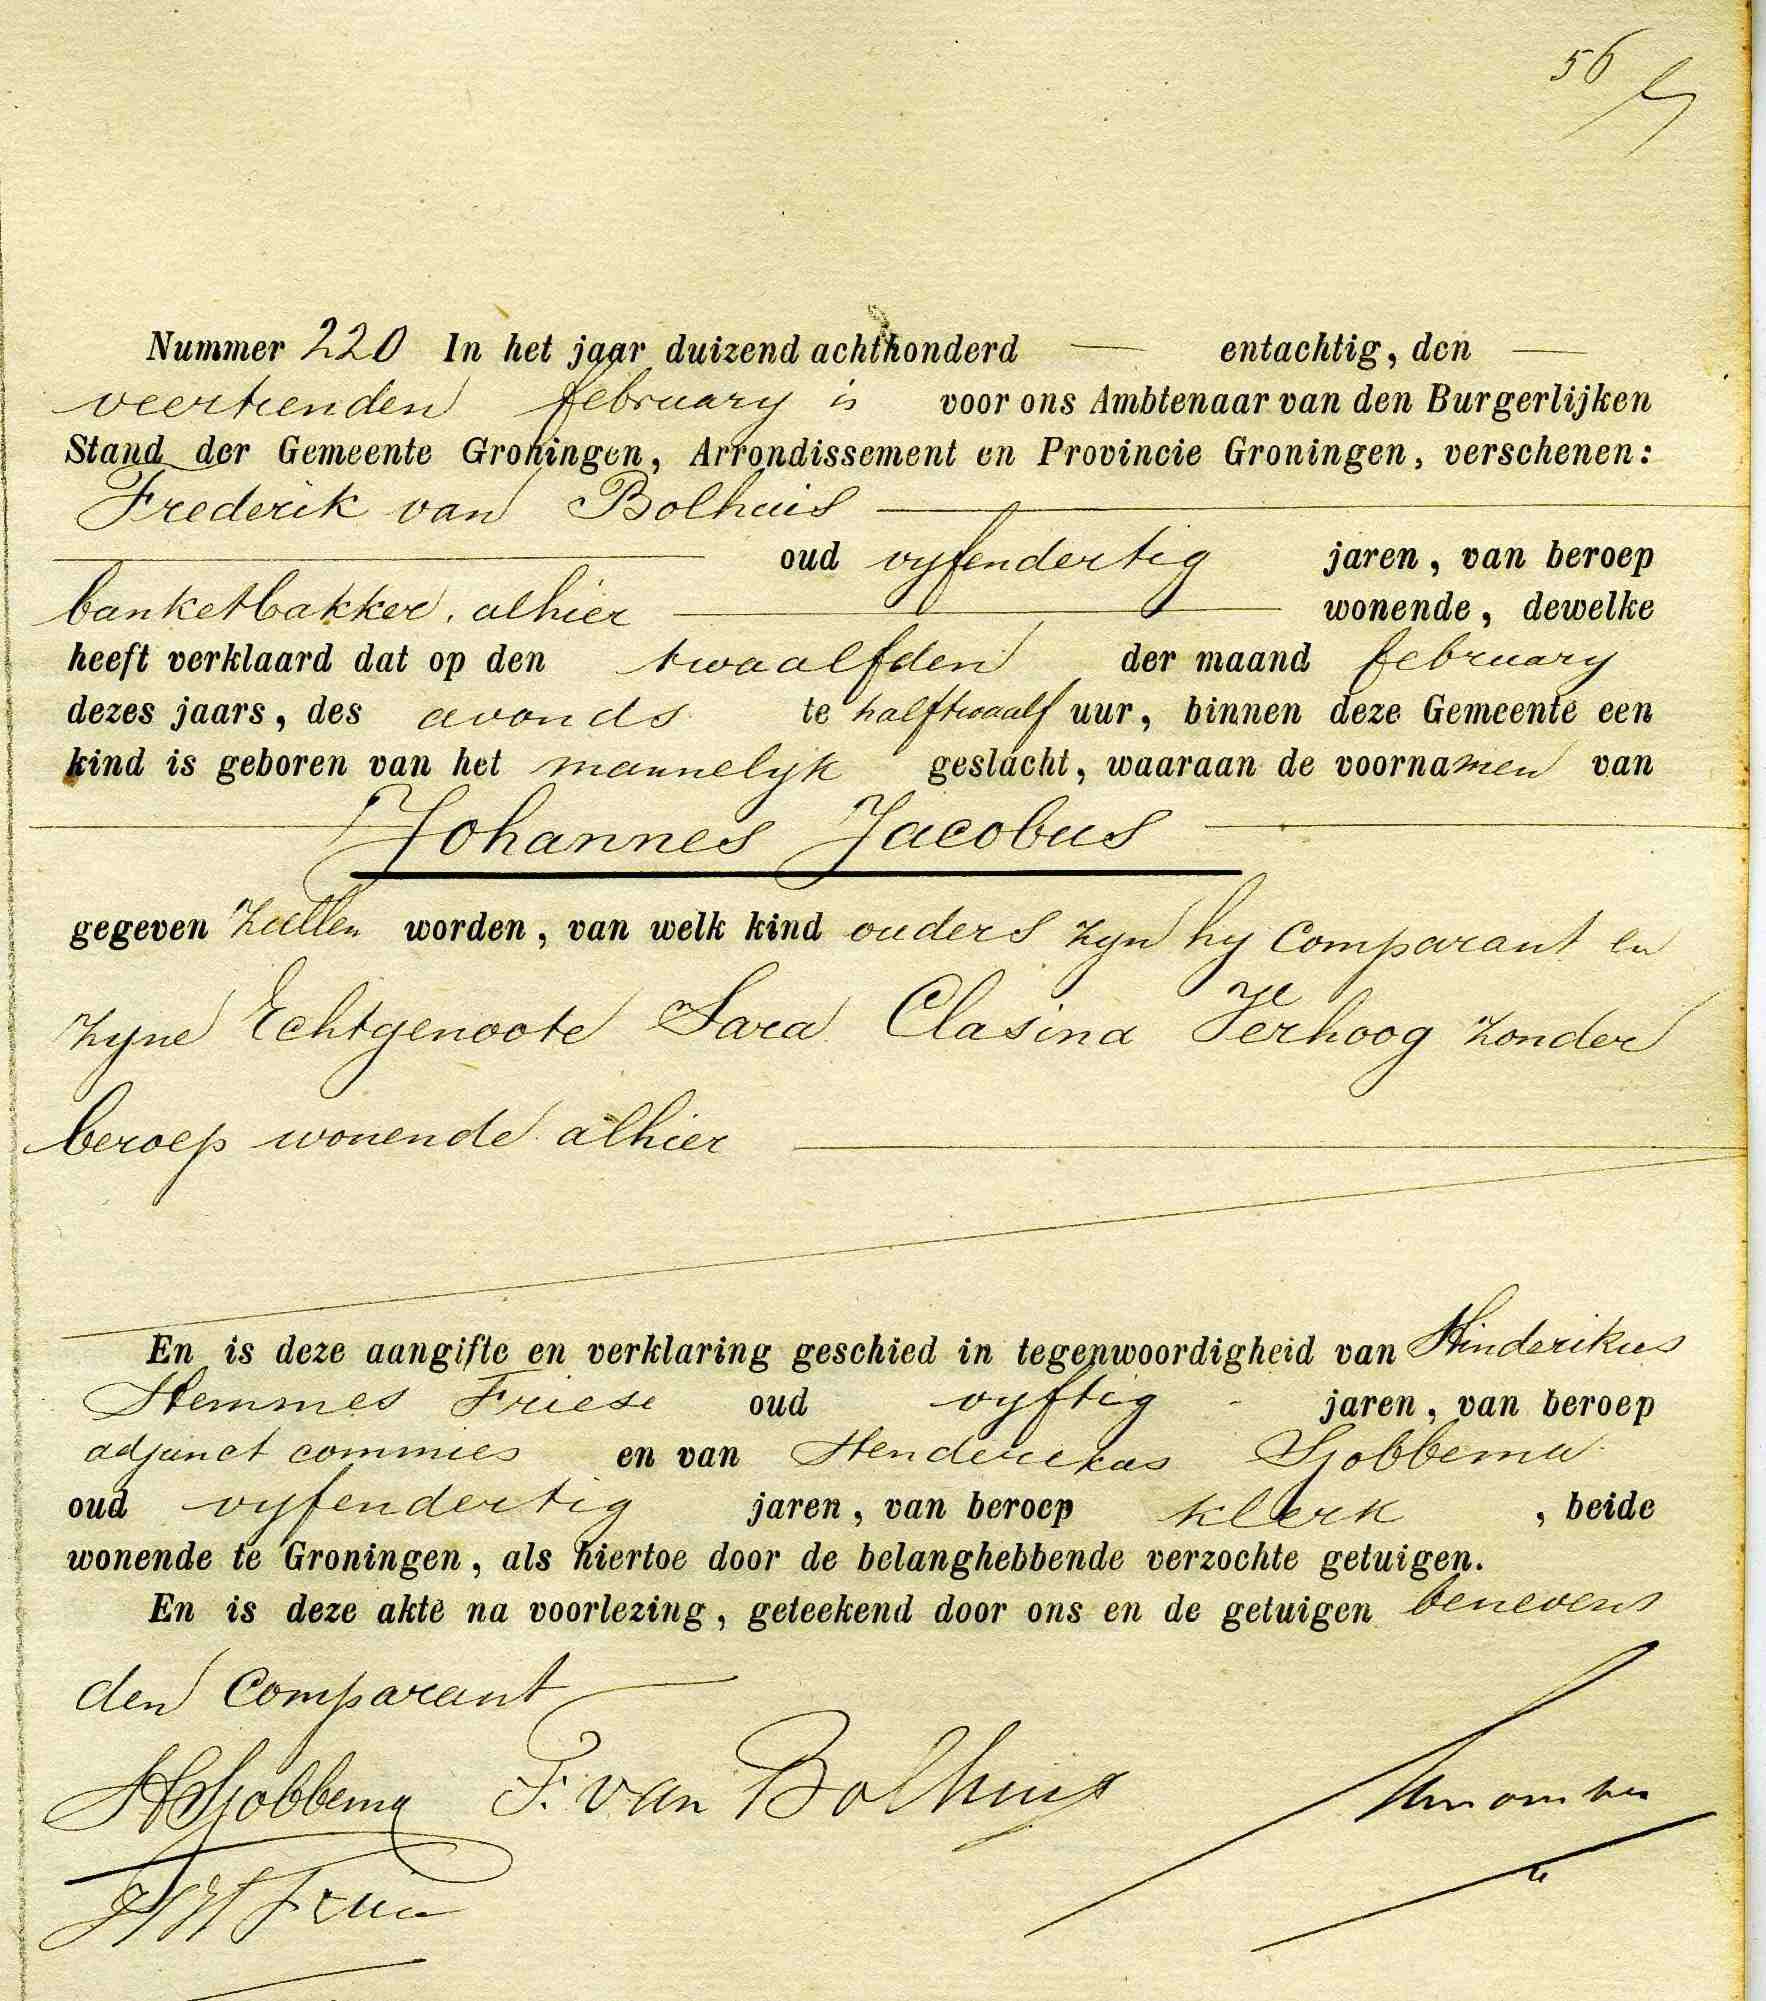 56
Nummer 220 In het jaar duizend achthonderd — entachtig, den —
veertienden february is voor ons Ambtenaar van den Burgerlijken
Stand der Gemeente Groningen, Arrondissement en Provincie Groningen, verschenen:
Frederik van Bolhuis —
— oud vyfendertig jaren, van beroep
banketbakker, alhier — wonende, dewelke
heeft verklaard dat op den twaalfden der maand february
dezes jaars, des avonds te halftwaalf uur, binnen deze Gemeente een
kind is geboren van het mannelyk geslacht, waaraan de voornamen van
— Johannes Jacobus —
gegeven zullen worden, van welk kind ouders zyn hy Comparant en
zyne Echtgenoote Sara Clasina Verhoog zonder
beroep wonende alhier —
En is deze aangifte en verklaring geschied in tegenwoordigheid van Hinderikus
Hemmes Friese oud vyftig jaren, van beroep
adjunct commies en van Henderikus Sjobbema
oud vyfendertig jaren, van beroep klerk, beide
wonende te Groningen, als hiertoe door de belanghebbende verzochte getuigen.
En is deze akte na voorlezing, geteekend door ons en de getuigen benevens
den Comparant —
HSjobbema F. van Bolhuis
HH Friese